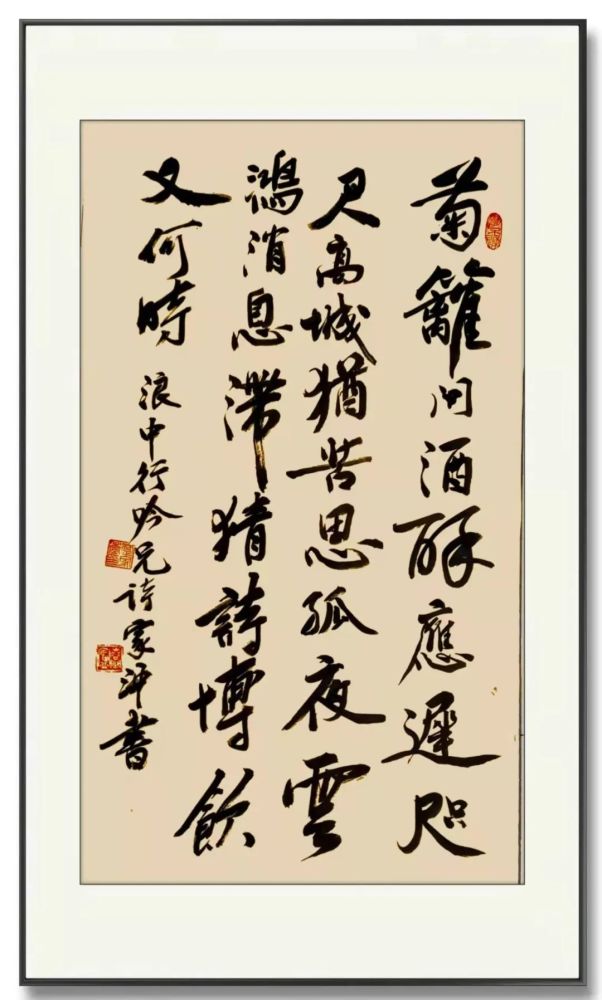 菊籬问酒醉應遲咫
尺高城猶苦思孤夜雲
鴻消息滯猜詩博飲
又何時
浪中行吟兄诗家泙書